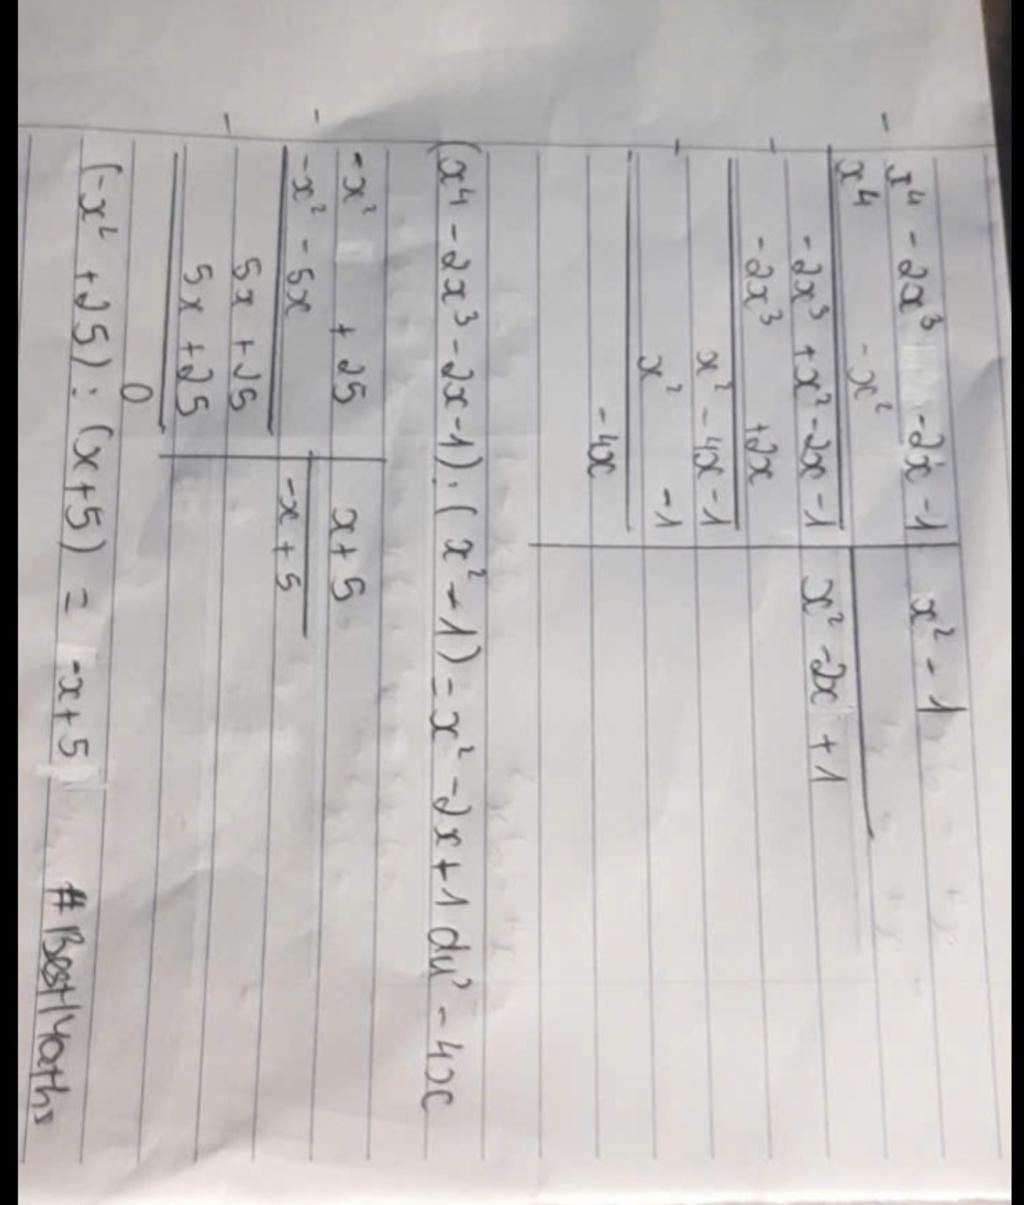 x⁴ - 2x³ -2x -1 | x² - 1
- x⁴ - x²
-2x³ + x² - 2x - 1 | x² - 2x + 1
- -2x³ +2x
x² - 4x - 1
- x² - 1
- 4x
(x⁴ - 2x³ - 2x - 1) : (x² - 1) = x² - 2x + 1 dư - 4x
-x² + 25 | x + 5
- -x² - 5x | -x + 5
5x + 25
- 5x + 25
0
(-x² + 25) : (x + 5) = -x + 5 # BestMaths